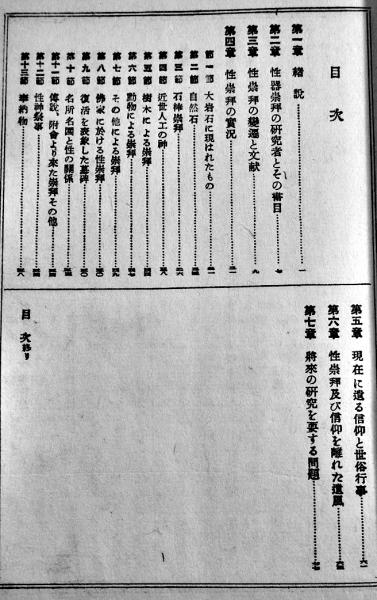 目次
第一章 緒説……一
第二章 性器崇拝の研究者とその書目……七
第三章 性崇拝の變遷と文献……九
第四章 性崇拝の實況
第一節 大岩石に現はれたもの
第二節 自然石
第三節 石棒崇拝
第四節 近世人工の神
第五節 樹木による崇拝
第六節 動物による崇拝
第七節 その他による崇拝
第八節 佛家に於ける性崇拝
第九節 復活を表象した墓碑
第十節 名所名園と性の關係
第十一節 傳説、附會より來た崇拝その他
第十二節 性神祭事
第十三節 奉納物
第五章 現在に遺る信仰と世俗行事
第六章 性崇拝及び信仰を離れた遺風
第七章 將來の研究を要する問題
目次終り